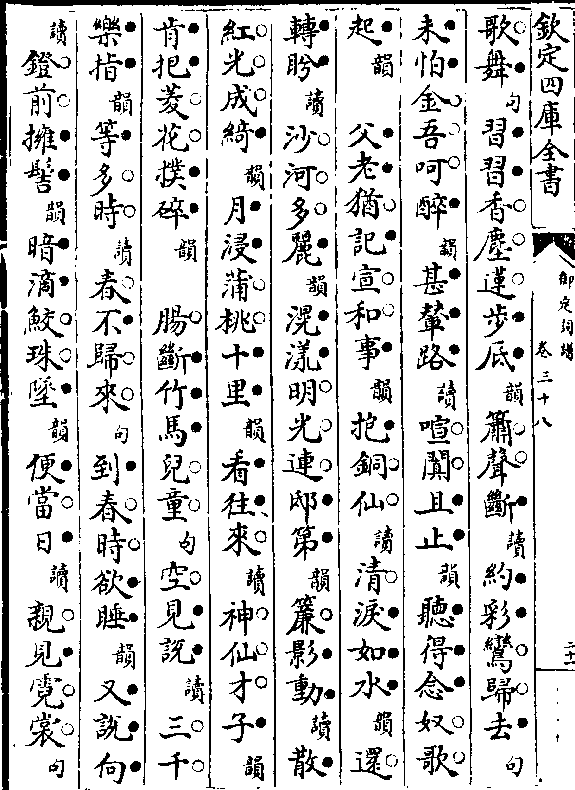 欽定四庫全書
御定詞譜
卷三十八
歌舞句習習香塵蓮步底韻簫聲斷讀約彩鸞歸去句
未怕金吾呵醉韻甚輦路讀喧闐且止韻聽得念奴歌
起韻　父老猶記宣和事韻抱銅仙讀清淚如水韻還
轉盼讀沙河多麗韻滉漾明光連邸第韻簾影動讀散
紅光成綺韻月浸蒲桃十里韻看往來讀神仙才子韻
肯把菱花撲碎韻　腸斷竹馬兒童句空見說讀三千
樂指韻等多時讀春不歸來句到春時欲睡韻又說向
讀鐙前擁髻韻暗滴鮫珠墜韻便當日讀親見霓裳句